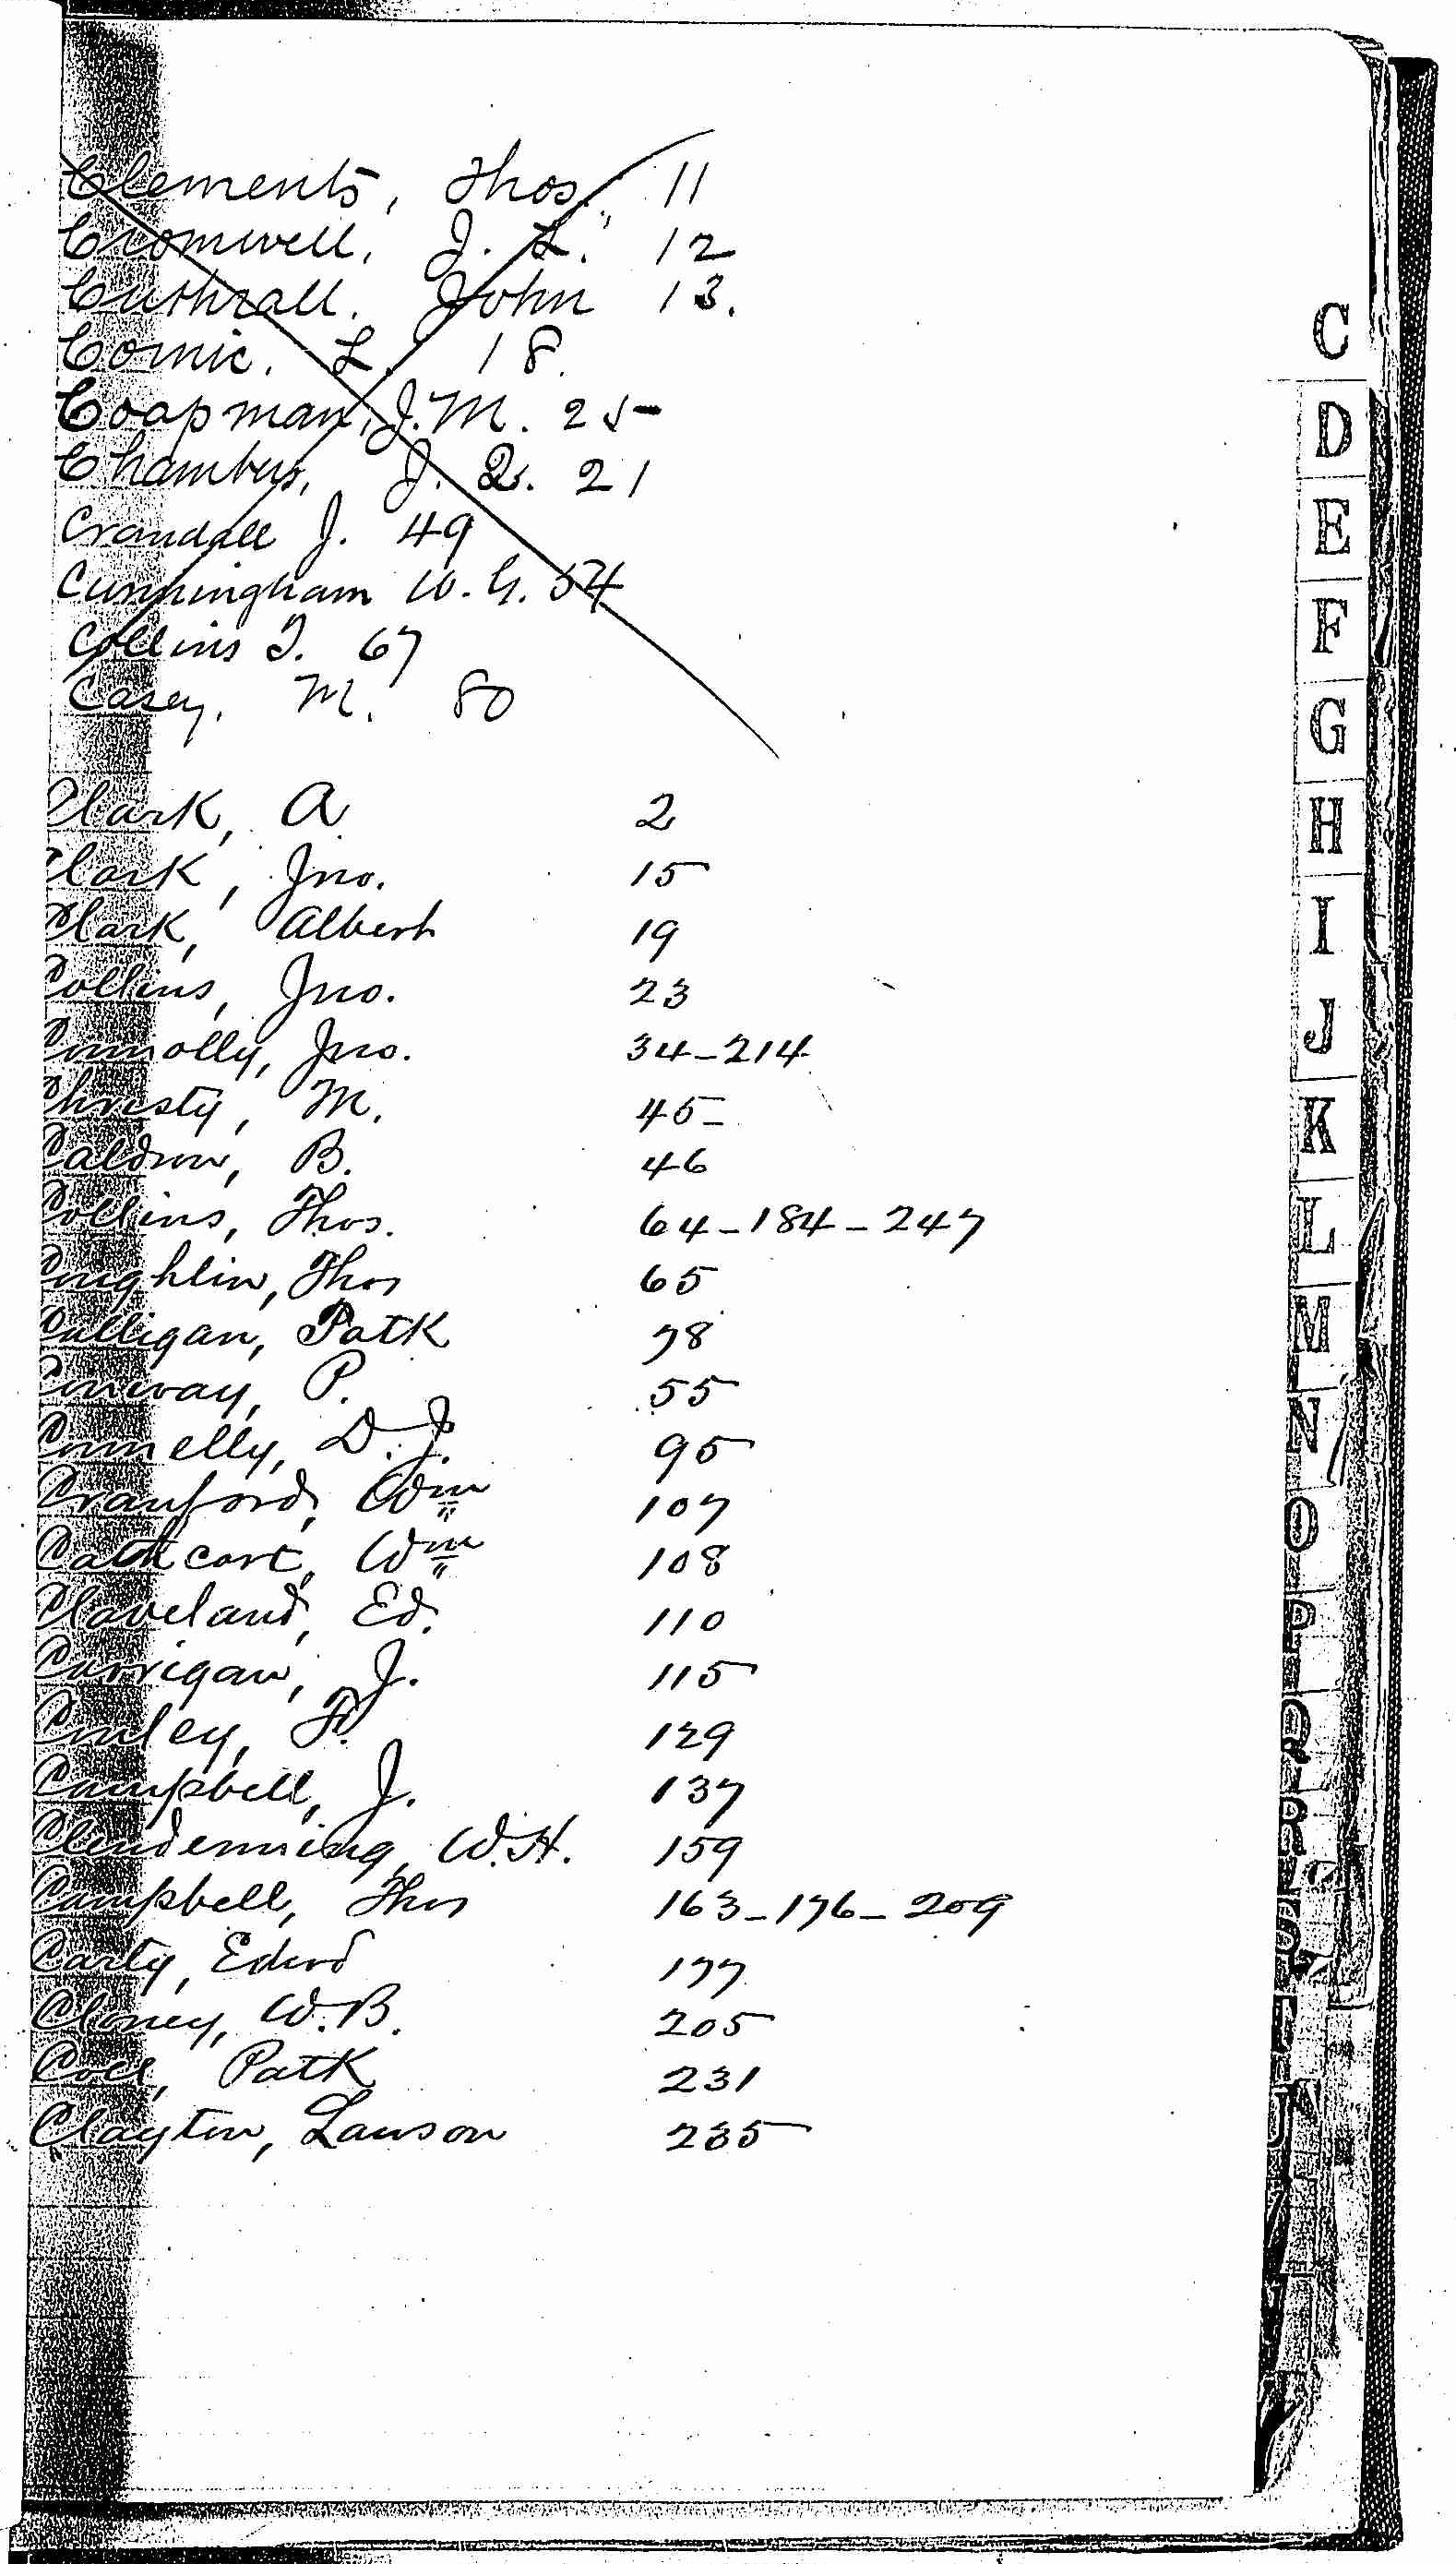 Clements, Thos. 11
Cromwell, J. L. 12
Cuthrall. John 13.
Comic. L. 18.
Coapman, J. M. 25
Chambers, J. Q. 21
Crandall J. 49
Cunningham W. G. 54
Collins T. 67
Casey, M. 80
Clark, A 2
Clark, Jno. 15
Clark, Albert 19
Collins, Jno. 23
Connolly, Jno. 34-214
Christy, M. 45
B. 46
Collins, Thos. 64-184-247
Coughlin, Thos 65
Culligan, Patk 78
Conway, P. 55
Connelly, D. J. 95
Cranford, Wm 107
Cathcart, Wm 108
Claveland, Ed. 110
Corrigan, J. 115
Conley, F. 129
Campbell, J. 137
Clendenning, W. H. 159
Campbell, Thos 163-176-209
Carty, Edwd 177
Cloney, W. B. 205
Patk 231
Clayton, Lawson 235
C
D
E
F
G
H
I
J
K
L
M
N
O
P
Q
R
S
T
U